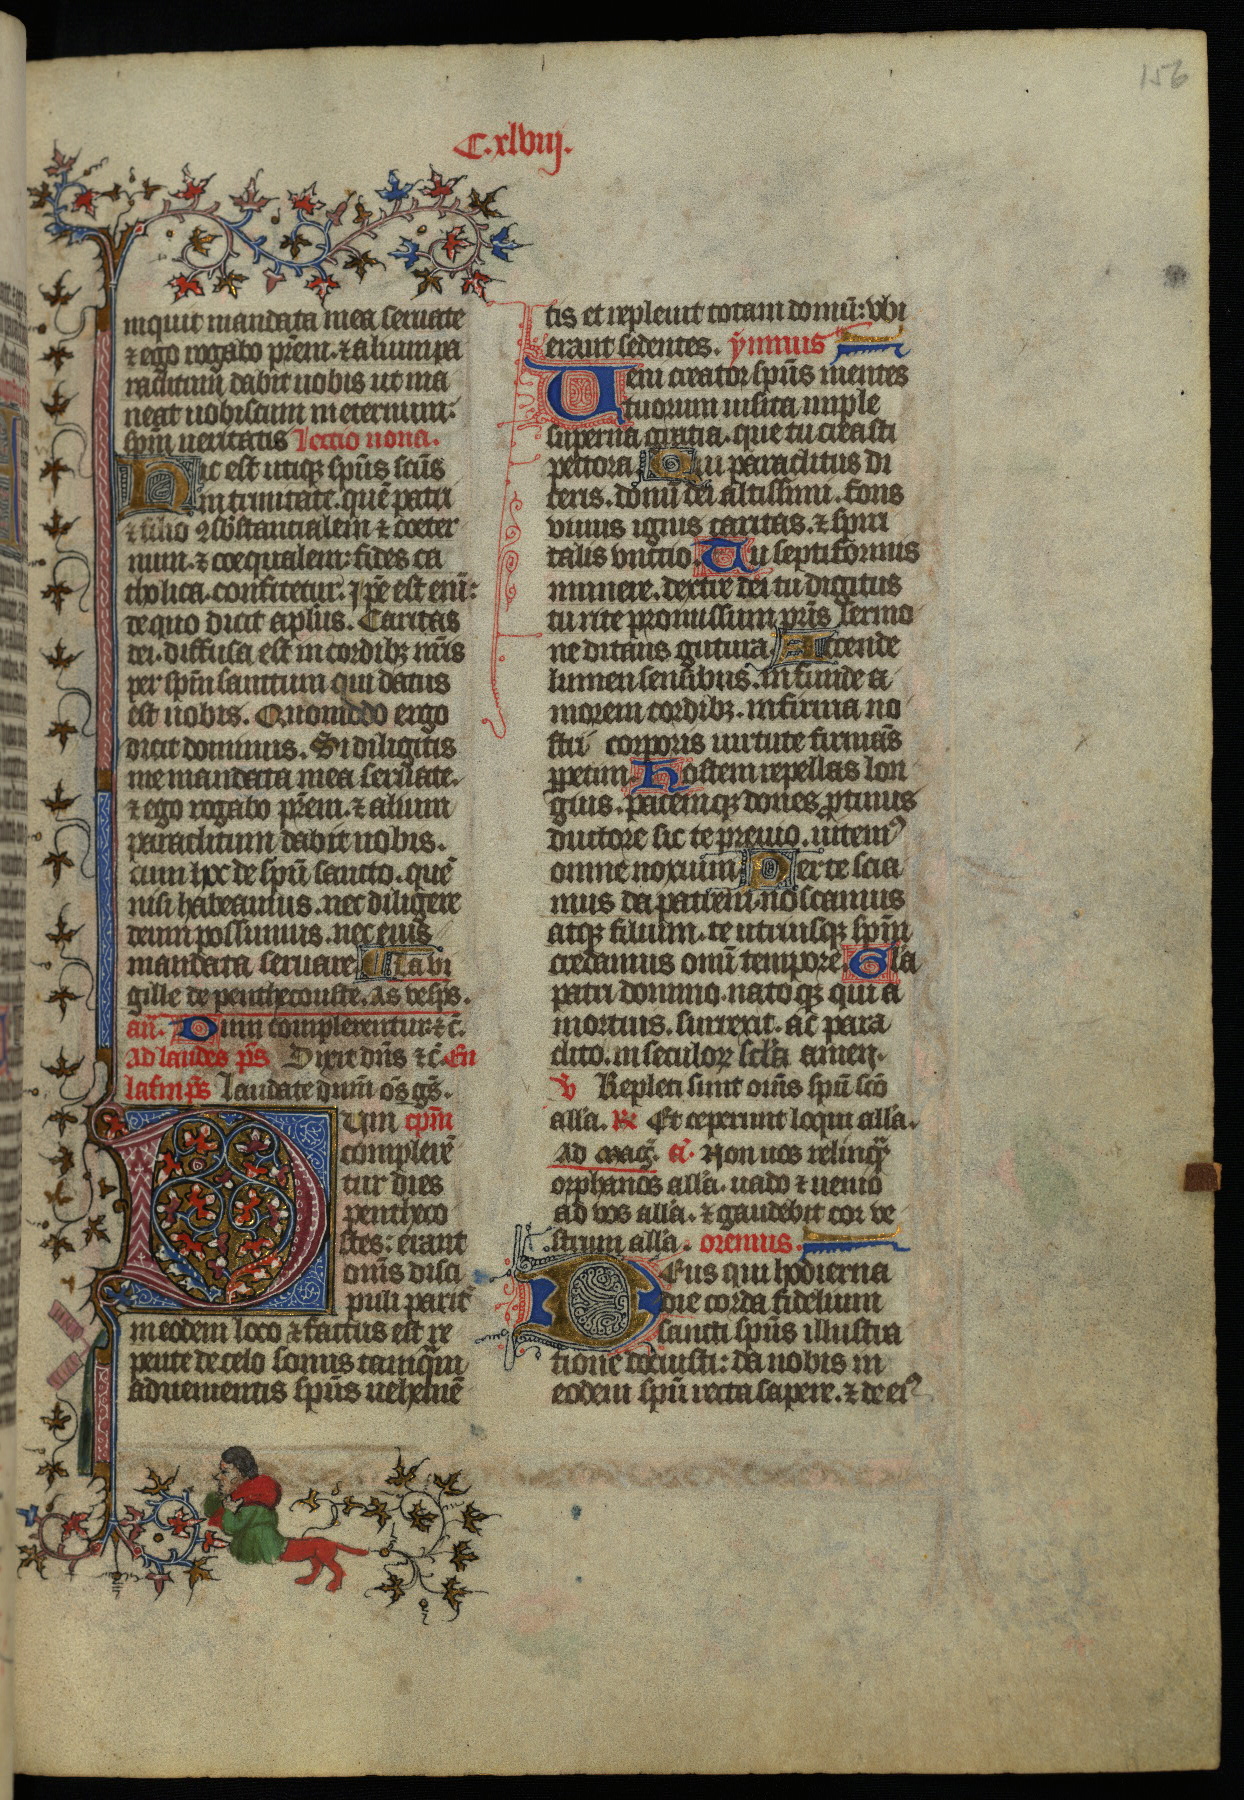 156
C. xlviij.
inquit mandata mea seruate
⁊ ego rogabo p̄rem. ⁊ alium pa
raclitum dabit uobis ut ma
neat uobiscum in eternum:
sp̄m ueritatis Lectio nona.
Hic est utiqꝫ sp̄us sc̄us
in trinitate. quē patri
⁊ filio ꝯsb̄stancialem ⁊ coeter
num. ⁊ coequalem: fides ca
tholica. confitetur. ip̄e est eni᷒:
de quo dicit ap̄lus. Caritas
dei. diffusa est in cordibꝫ nr̄is
per sp̄m sanctum qui datus
est nobis. Quomodo ergo
dicit dominus. Si diligitis
me mandata mea seruate.
⁊ ego rogabo p̄rem. ⁊ alium
paraclitum dabit uobis.
cum hoc de sp̄u sancto. quē
nisi habeamus. nec diligere
deum possumus. nec eius
mandata seruare. In vi
gille de penthecouste. As vesp̄s.
an̄. Dum complerentur ⁊c̄.
Ad laudes p̄s Dixit dn̄s ⁊c̄. En
la fin p̄s Laudate dnm̄ om̄s gn̄s.
Dum cp̄m
complerē
tur dies
pentheco
stes: erant
om̄s disci
puli parit̄
in eodem loco ⁊ factus est re
pente de celo sonus tamqm̄
aduenientis sp̄us uehemē
tis et repleuit totam domū: vbi
erant sedentes. ẏmnus
Veni creator sp̄us mentes
tuorum uisita imple
superna gratia. que tu creasti
pectora. Qui paraclitus di
ceris. donū dei altissimi. fons
viuus ignis caritas. ⁊ spiri
talis vnctio. Tu septiformis
munere. dextre dei tu digitus
tu rite promissum pr̄is sermo
ne ditans gutura. Accende
lumen sensibus. infunde a
morem cordibꝫ. infirma no
stri corporis uirtute firmās
ꝑpetim. Hostem repellas lon
gius. pacemqꝫ dones ꝓtinus
ductore sic te preuio. uitemꝰ
omne noxium. Per te scia
mus da patrem. noscamus
atqꝫ filium. te utriusqꝫ sp̄m
credamus omi᷒ tempore. Gl̄a
patri domino. natoqꝫ qui a
mortuis. surrexit. ac para
clito. in seculoꝝ sc̄la amen.
℣ Repleti sunt om̄s sp̄u sc̄o
all̄a. ℟ Et ceperunt loqui all̄a.
Ad maḡ. a᷒. Non uos relinqr̄
orphanos all̄a. uado ⁊ uenio
ad vos all̄a. ⁊ gaudebit cor ve
strum all̄a. oremus.
Deus qui hodierna
die corda fidelium
sancti sp̄us illustra
tione docuisti: da nobis in
eodem sp̄u recta sapere. ⁊ de eiꝰ